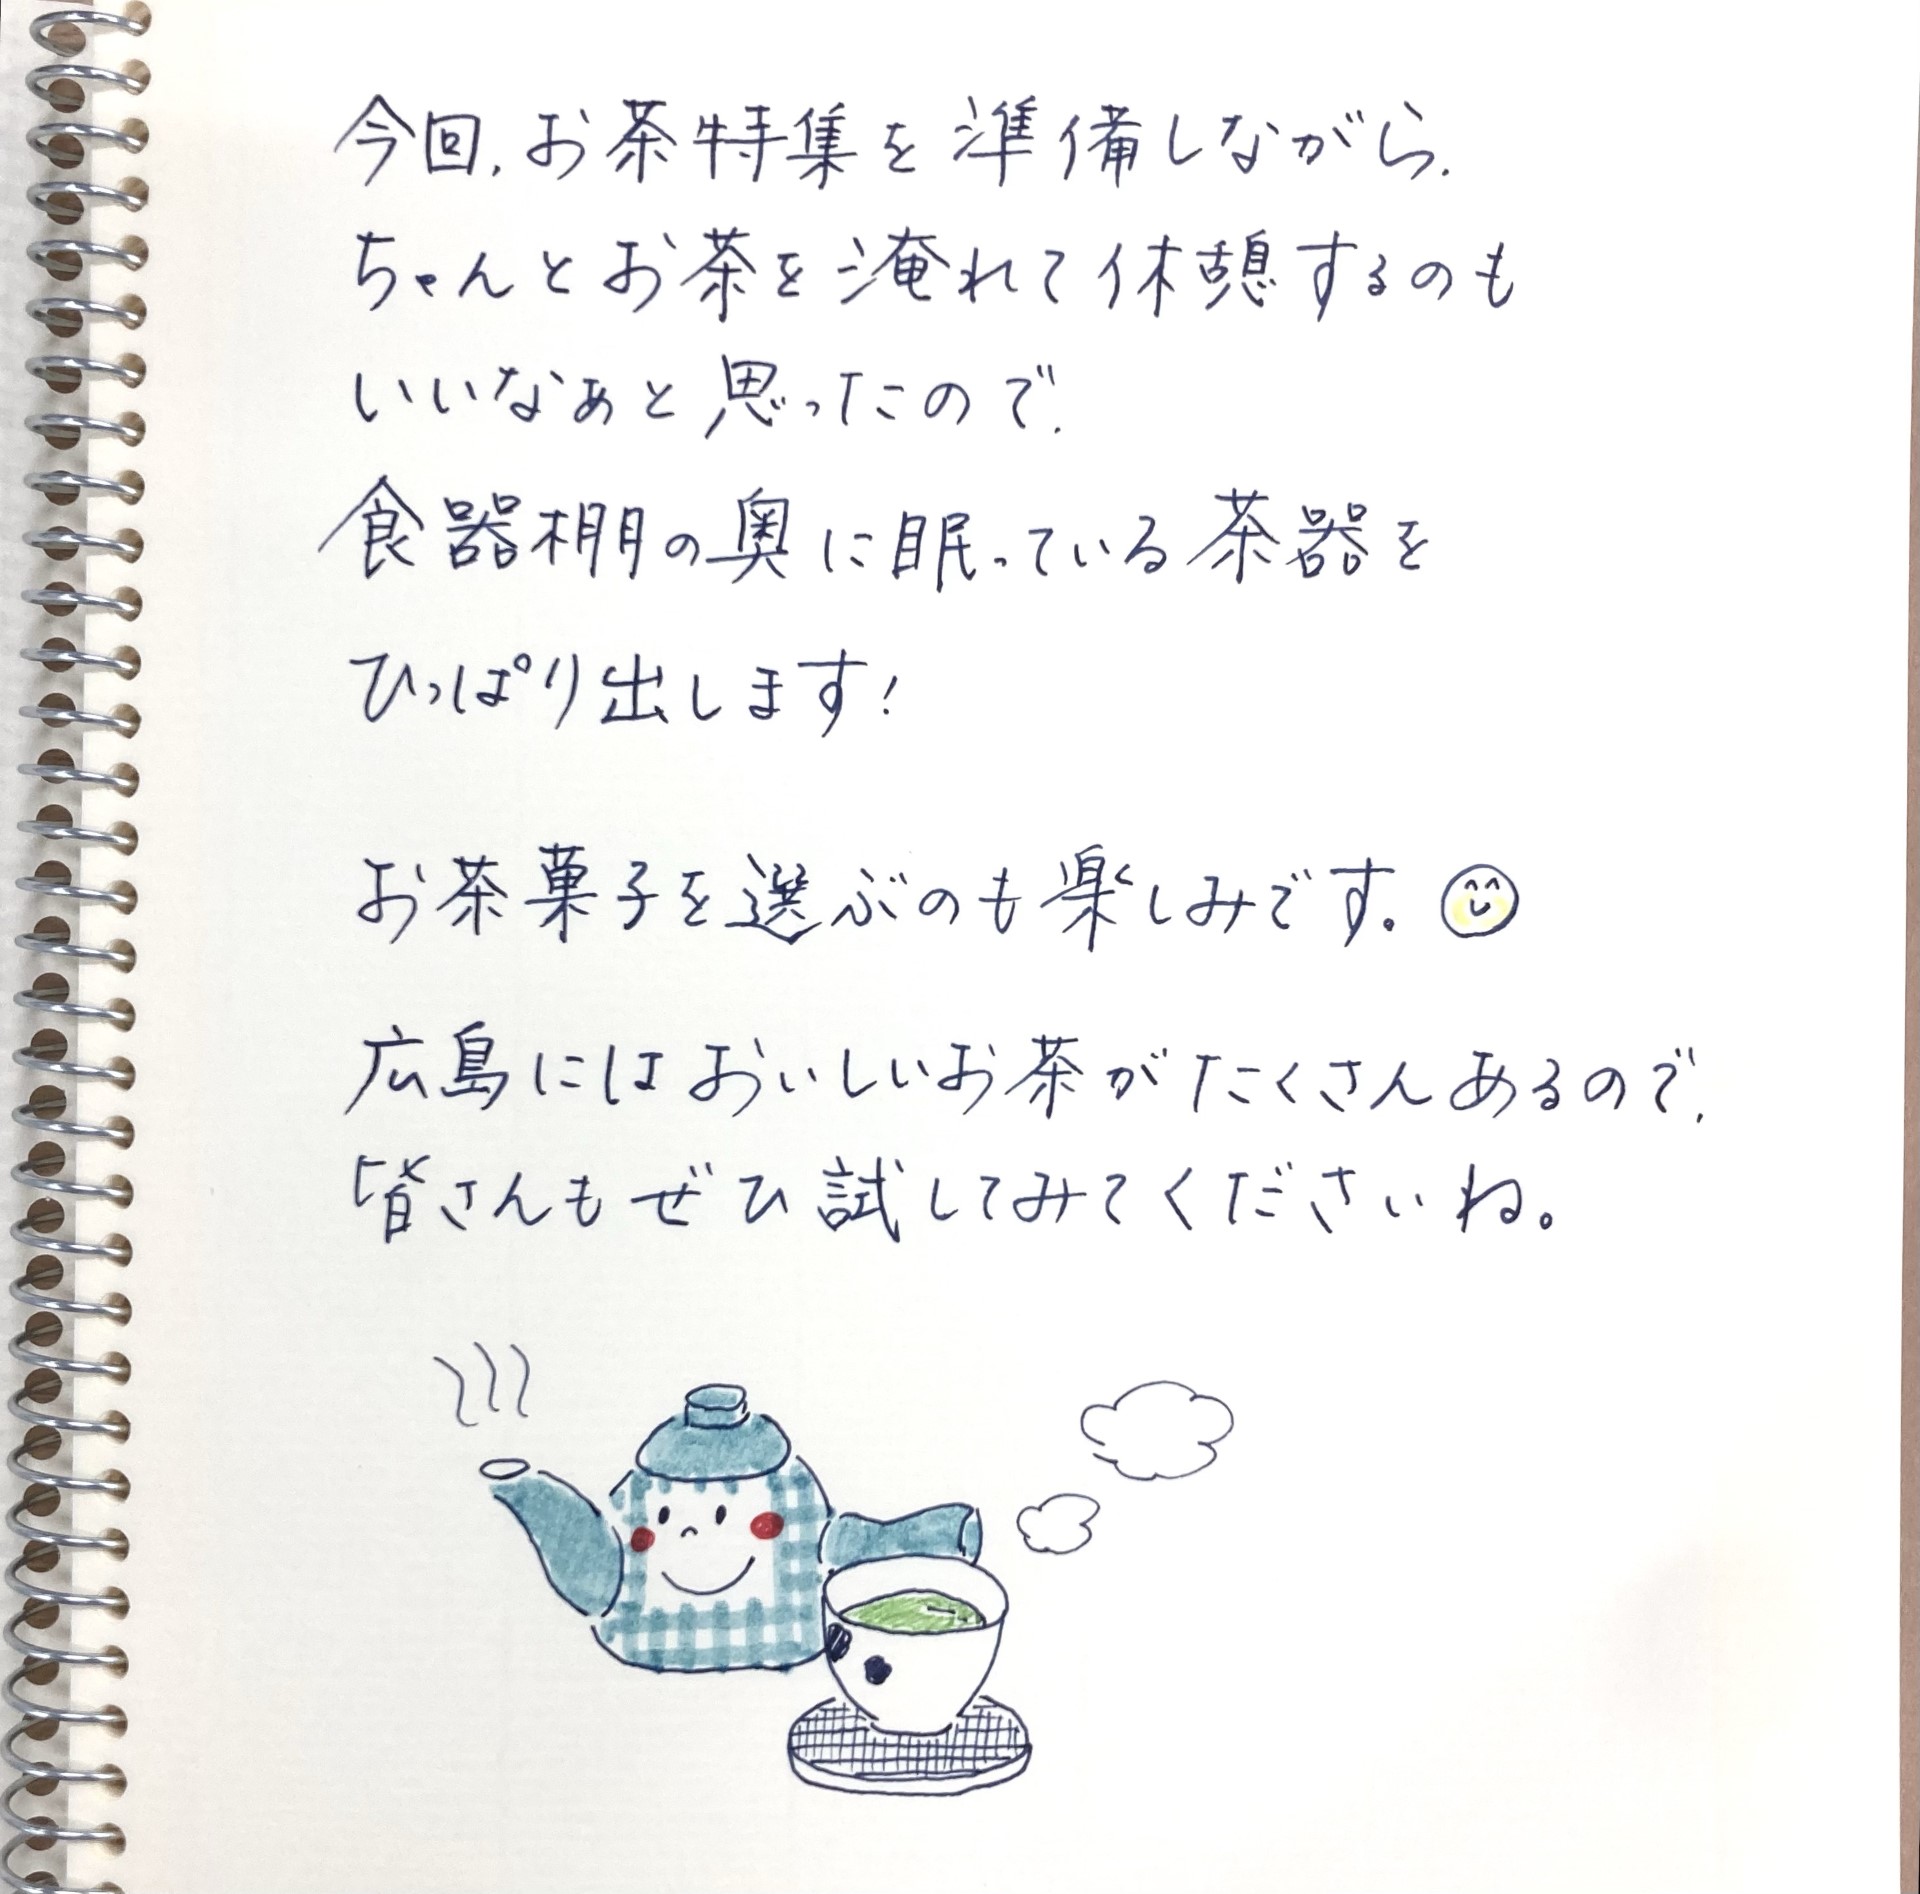 今回、お茶特集を準備しながら、
ちゃんとお茶を淹れて休憩するのも
いいなぁと思ったので、
食器棚の奥に眠っている茶器を
ひっぱり出します!
お茶菓子を選ぶのも楽しみです。
広島にはおいしいお茶がたくさんあるので、
皆さんもぜひ試してみてくださいね。